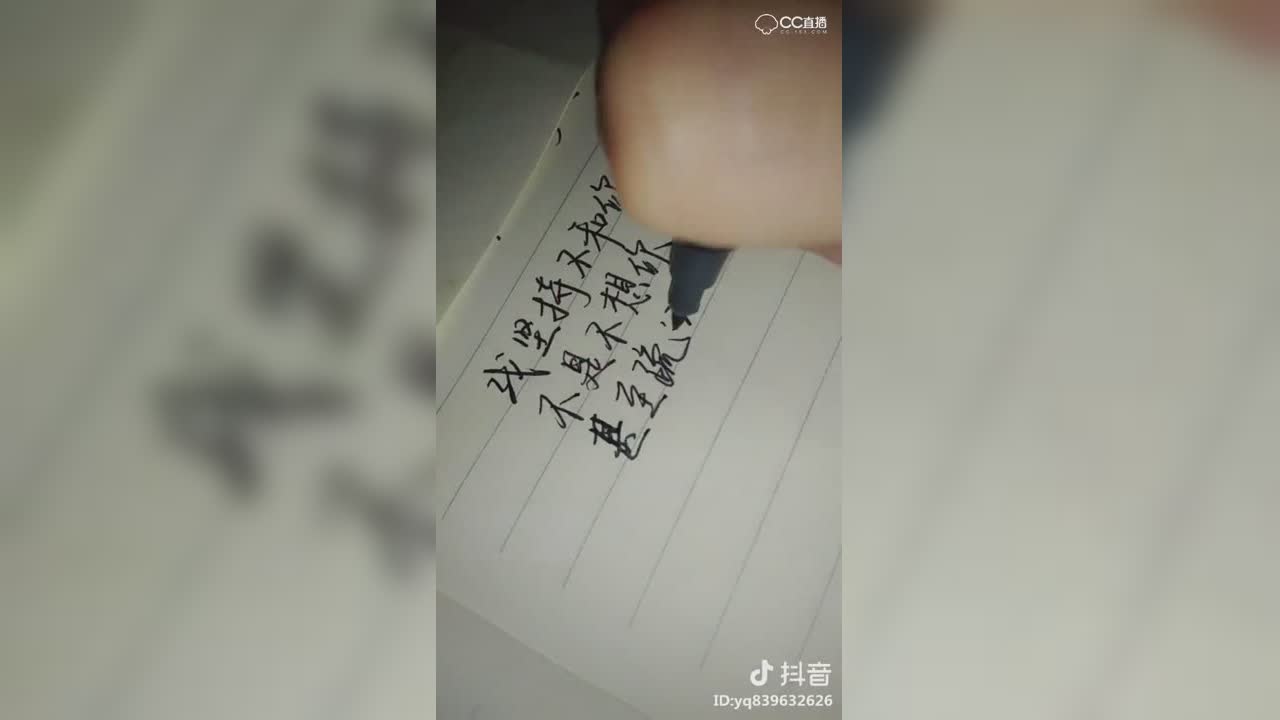 CC直播
CC.163.COM
我坚持不和你
不是不想你
甚至疏
抖音
ID:yq839632626